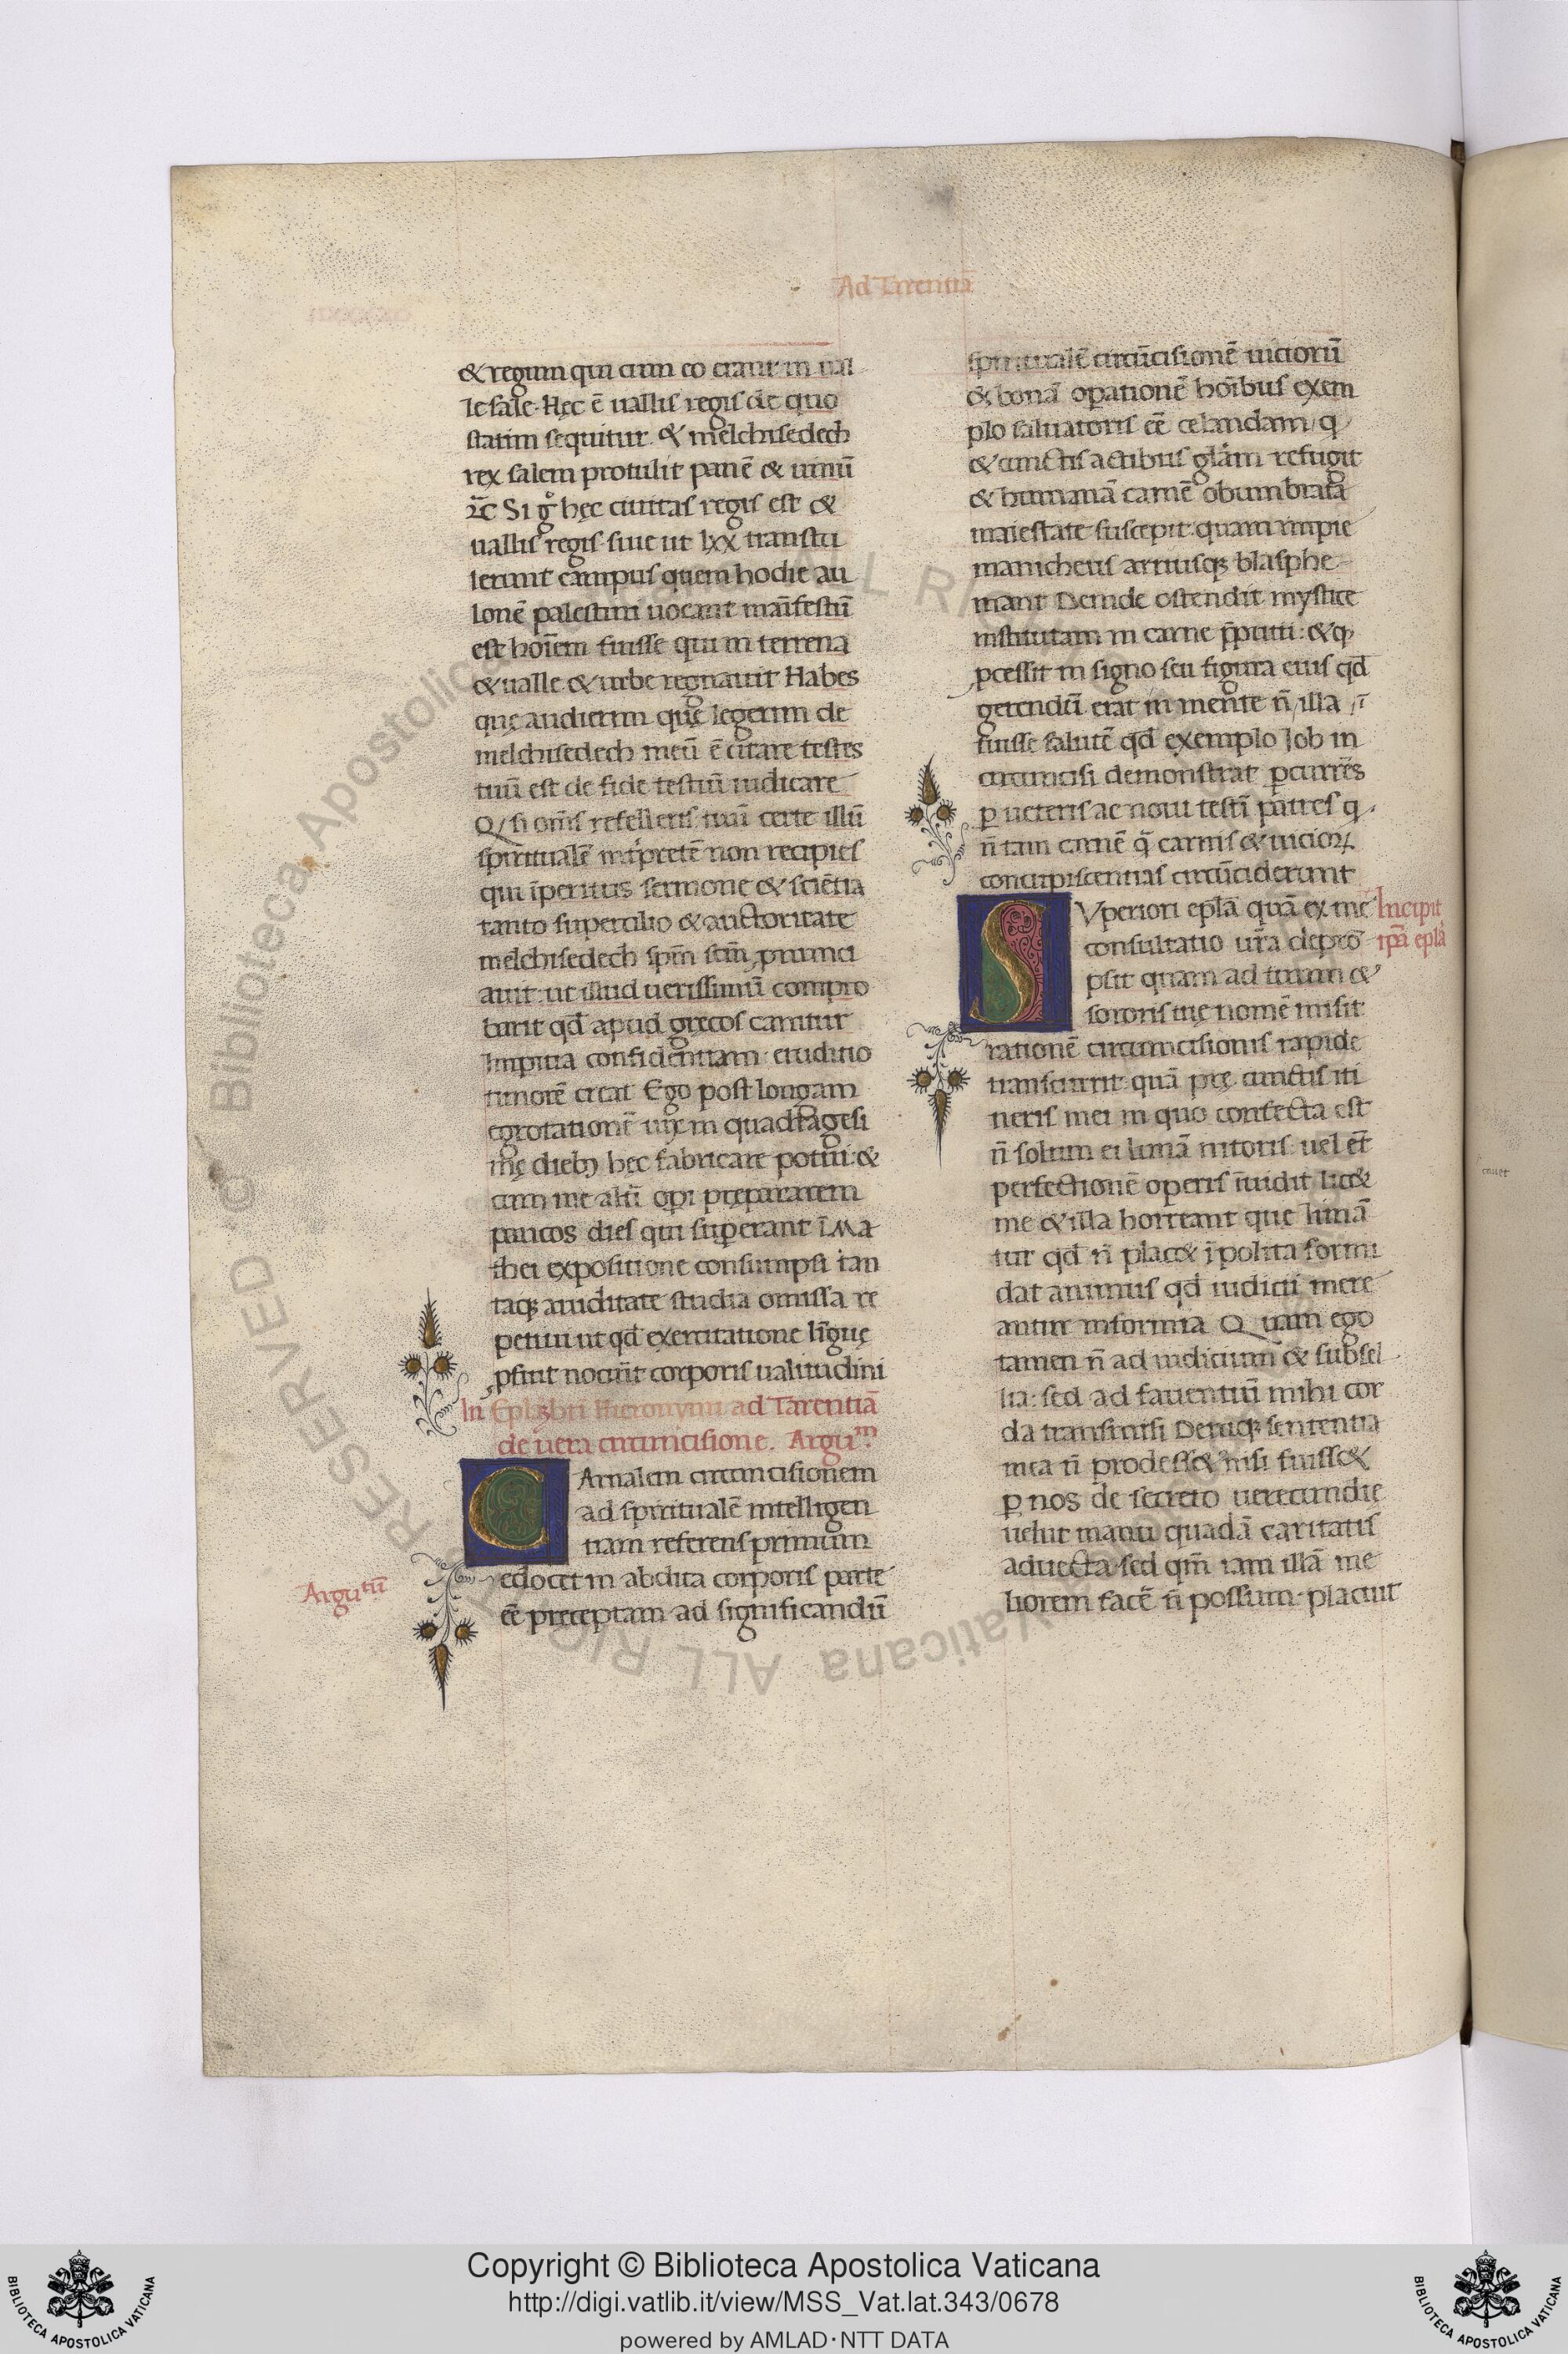 Ad Tarentiā
& regum qui cum eo erant in ual
le saue. Hęc ē uallis regis de quo
statim sequitur. & melchisedech
rex salem protulit panē & uinū
Si g̊ hęc ciuitas regis est &
uallis regis siue ut lxx transtu
lerunt campus quem hodie au
lonē palestini uocant manīfestū
est hoīem fuisse qui in terrena
& ualle & urbe regnauit Habes
quę audierim quę legerim de
melchisedech meū ē citare testes
tuū est de fide testiū iudicare
Q si om̄s refelleris tuū certe illū
spiritualē interpretē non recipies
qui īperitus sermone & sciētia
tanto supercilio & auctoritate
melchisedech spm̄ scm̄ pnunci
auit: ut illud uerissimū compro
barit qd̄ apud gręcos canitur
Imperitia confidentiam: eruditio
timorē creat Ego post longam
egrotationē uix in quadragesi
mę dieb; hęc fabricare potui: &
cum me aliī opi prępararem
paucos dies qui supererant ī Ma
thei expositione consumpsi tan
taq; auiditate studia omissa re
petiui ut qd̄ exercitatione linguę
pfuit nocuīt corporis ualitudini
In Eplā bti Hieronymi ad Tarentiā
de uera circumcisione. Arguᵐ.
Carnalem circumcisionem
ad spiritualē intelligen
tiam referens primum
edocet in abdita corporis parte
eē preceptam ad significandū
Arguᵗū
spiritualē circūcisionē uiciorū
& bonā operationē hoībus exem
plo saluatoris eē celandam / q
& cunctis actibus glām refugit
& humanā carnē obumbrata
maiestate suscepit: quam impie
manicheus arriusq; blasphe
mant Deinde ostendit mystice
institutam in carne pputii: & q
pcessit in signo seu figura eius qd̄
gerendū erat in mente n̄ / illa / ī
fuisse salutē qd̄ exemplo Iob in
circuncisi demonstrat pcurrēs
p ueteris ac noui testī patres q
n̄ tam carnē q̄ carnis & uicioꝝ
concupiscentias circūciderunt
Incipit
ipā eplā
SVperiori eplā quā ex me
consultatio ur̄a depro
psit quam ad tuum &
sororis tuę nomē misit
rationē circumcisionis rapide
transcurrit: quā prę cunctis iti
neris mei in quo confecta est
n̄ solum ei limā nitoris: uel et̄
perfectionē operis īuidit lic&
me & illa horreant que limā
tur qd̄ n̄ plac& īpolita formi
dat animus qd̄ iudicii mere
antur informia Quam ego
tamen n̄ ad iudicium & subsel
lia: sed ad fauentiū mihi cor
da transmisi Deniq; sententia
mea n̄ prodess& nisi fuiss&
p nos de secreto uerecundię
uelut manu quadā caritatis
aduecta: sed qm̄ iam illā me
liorem facē n̄ possum: placuit
Copyright © Biblioteca Apostolica Vaticana
http://digi.vatlib.it/view/MSS_Vat.lat.343/0678
powered by AMLAD·NTT DATA
BIBLIOTECA APOSTOLICA VATICANA
BIBLIOTECA APOSTOLICA VATICANA